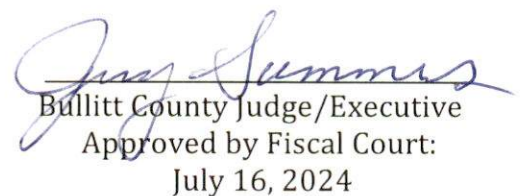 Jerry Summers
Bullitt County Judge/Executive
Approved by Fiscal Court:
July 16, 2024